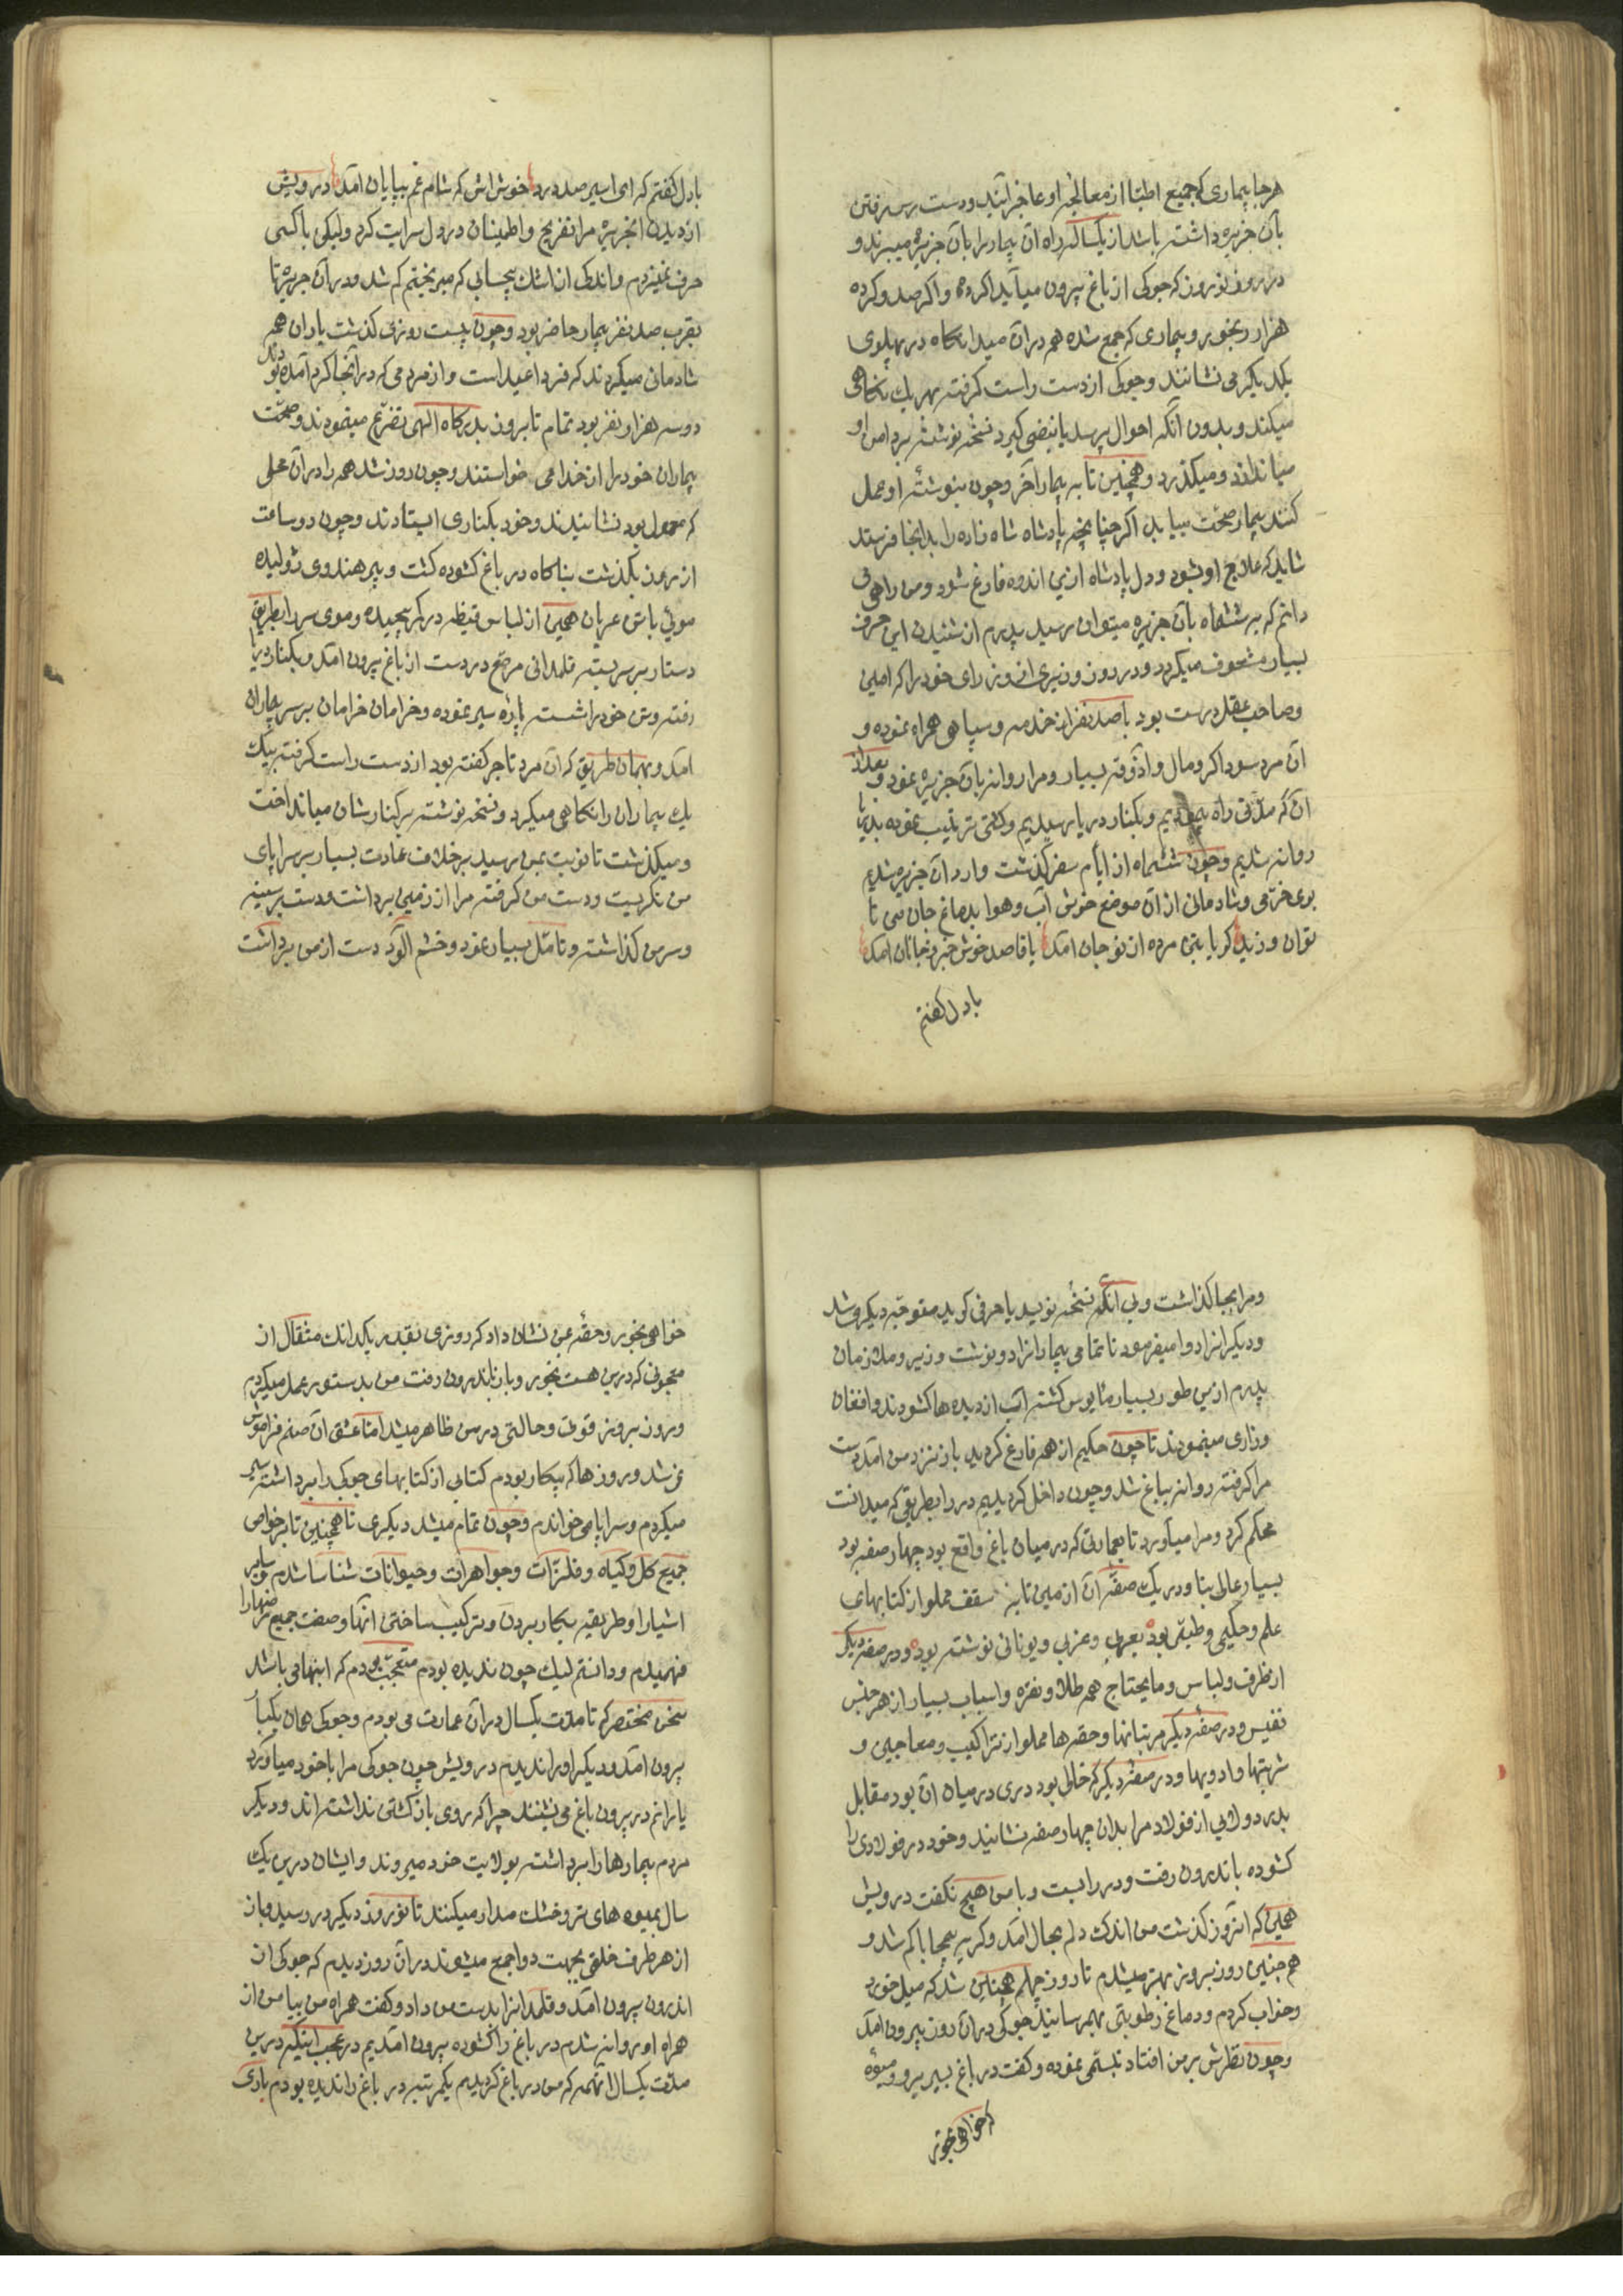 هر جا بیماری که جمیع اطبا از معالجهٔ او عاجز آیند و دست رس رفتن
بآن جزیره داشته باشد از یکساله راه آن بیمار را بآن جزیره میبرند و
در روز نوروز که جوکی از باغ بیرون میآید اگر ده و اگر صد و گر ده
هزار رنجور و بیماری که جمع شده همه در آن میدانگاه در پهلوی
یکدیگر می نشانند و جوکی از دست راست گرفته بهر یك نگاهی
میکند و بدون آنکه احوال پرسد یا نبضی گیرد نسخه نوشته بر دامن او
میاندازد و میگذرد و همچنین تا به بیمار آخر و چون بنوشتهٔ او عمل
کنند بیمار صحت بیابد اگر چنانچه پادشاه شاه زاده را بدانجا فرستد
شاید که علاج او بشود و دل پادشاه ازین اندوه فارغ شود و من راهی
دانم که به ششماه بآن جزیره میتوان رسید پدرم از شنیدن این حرف
بسیار مشعوف میگردد و در روز وزیری از وزرای خود را که امین
و صاحب عقل درست بود با صد نفر از خدمه و سپاهی همراه نموده و
آن مرد سوداگر و مال و آذوقه بسیار و مرا روانه بآن جزیره نمود و بعد از
آن که مدتی راه پیمودیم و بکنار دریا رسیدیم و کشتی ترتیب نموده بدریا
روانه شدیم و چون ششماه از ایام سفر گذشت وارد آن جزیره شدیم
بوی خرمی و شادمانی از آن موضع خوش آب و هوا بدماغ جان من نا
توان وزید گویا بتن مرده از نو جان آمد یا قاصد خوش خبر ز جانان آمد
بادل گفتم
بادل گفتم که ای اسیر صد درد خوش باش که شام غم بپایان آمد درویش
از دیدن انجزیره مرا تفریح و اطمینان در دل سرایت کرد ولیکن با کسی
حرف نمیزدم و اندکی از اشك بیحسابی که میریختم کم شد و در آن جزیره تا
بقرب صد نفر بیمار حاضر بود و چون بیست روزی گذشت یاران همه
شادمانی میکردند که فردا عید است و از مردمی که در آنجا گرد آمده بودند
دو سه هزار نفر بود تمام تا بروز بدرگاه الهی تضرع مینمودند و صحت
بیماران خود را از خدا می خواستند و چون روز شد همه را در آن محلی
که معمول بود نشانیدند و خود بکناری ایستادند و چون دو ساعت
از روز بگذشت بناگاه در باغ گشوده گشت و پیر هندوی ژولیده
موئی باتن عریان همین از لباس قطیفه در کمر پیچیده و موی سر را بطریق
دستار بر سر بسته قلمدانی مرصع در دست از باغ بیرون آمد و بکنار دریا
رفته و تن خود را شسته پارهٔ سیر نموده و خرامان خرامان بر سر بیماران
آمد و بهمان طریق که آن مرد تاجر گفته بود از دست راست گرفته بیك
یك بیماران را نگاهی میکرد و نسخه نوشته بر کنارشان میانداخت
و میگذشت تا نوبت بمن رسید بر خلاف عادت بسیار بر سراپای
من نگریست و دست من گرفته مرا از زمین برداشت و دست بر سینه
و سر من گذاشته و تامل بسیار نمود و خشم آلود دست از من برداشت
و مرا بجا گذاشت و بی آنکه نسخه نویسد یا حرفی گوید متوجه دیگری شد
و دیگرانرا دوا میفرمود تا تمامی بیمارانرا دو نوشت وزیر و ملازمان
پدرم ازین طور بسیار مأیوس گشته آب از دیده ها گشودند و افغان
و زاری مینمودند تا چون حکیم از همه فارغ گردید باز نزد من آمد دست
مرا گرفته روانه بباغ شد و چون داخل گردیدیم در را بطریقی که میدانست
محکم کرد و مرا میآورد تا بعمارتی که در میان باغ واقع بود چهار صفه بود
بسیار عالی بنا و در یك صفهٔ آن از زمین تا بزیر سقف مملو از کتابهای
علم و حکیمی و طبی بود بعبری و عربی و یونانی نوشته بود و در صفه دیگر
از ظرف و لباس و مایحتاج همه طلا و نقره و اسباب بسیار از هر جنس
نفیس و در صفهٔ دیگر مرتبانها و حقه ها مملو از تراکیب و معاجین و
شربتها و ادویها و در صفهٔ دیگر که خالی بود دری در میان آن بود مقابل
بدر دولابی از فولاد مرا بدان چهار صفه نشانید و خود در فولادی را
گشوده باندرون رفت و در را بست و با من هیچ نگفت درویش
همین که آنروز گذشت من اندك دلم بحال آمد و گریه بیجا با کم شد و
هم چنین روز بروز بهتر میشدم تا روز چهلم همچنین شد که میل خورد
و خواب کردم و دماغ رطوبتی بهم رسانید جوکی در آن روز بیرون آمد
و چون نظرش بر من افتاد تبسمی نموده و گفت در باغ بسیر برو و میوه
که خواهی بخور
خواهی بخور و حقهٔ بمن نشان داد که روزی بقدر یکدانك مثقال از
معجونی که درین هست بخور و باز باندرون رفت من بدستور عمل میکردم
و روز بروز قوت و حالتی در من ظاهر میشد اما عشق آن صنم فراموش
نمی شد و روزها که بیکار بودم کتابی از کتابهای جوکی را برداشته سیر
میکردم و سراپا می خواندم و چون تمام میشد دیگری تا همچنین تا بر خواص
جمیع گل و گیاه و فلزات و جواهرات و حیوانات شناسا شدم و سایر
اشیا را و طریقه بکار بردن و ترکیب ساختن آنها و صفت جمیع مرضها را
فهمیدم و دانستم لیك چون ندیده بودم متعجب بودم که اینها می باشد
سخن مختصر که تا مدت یکسال در آن عمارت می بودم و جوکی همان یکبار
بیرون آمد و دیگر او را ندیدم درویش چون جوکی مرا با خود میآورد
یارانم در بیرون باغ می نشنند چرا که روی بازگشتن نداشته اند و دیگر
مردم بیمارها را برداشته بولایت خود میروند و ایشان درین یك
سال بمیوه های تر و خشك مدار میکنند تا نوروز دیگر در رسید و باز
از هر طرف خلقی بجهت دوا جمع میشوند در آن روز دیدم که جوکی از
اندرون بیرون آمد و قلمدانرا بدست من داد و گفت همراه من بیا من از
همراه او روانه شدم در باغ را گشوده بیرون آمدیم در عجب اینکه درین
مدت یکسال آنهمه که من در باغ گردیدیم یکمرتبه در باغ را ندیده بودم باری